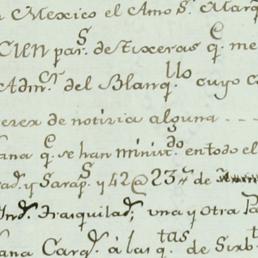 a Mexico el Amo S.r Marq
Cien par.s de tixeras q.e me
Adm.or del Blanq.llo cuyo c
erca de noticia alguna
ana q.e se han minist.do en todo el
ad.s y Sarap.s y 42@ 23 de
Ind.s trasquilad.s, una y otra Pa
ana Carg.s á las q.tas de Sixt